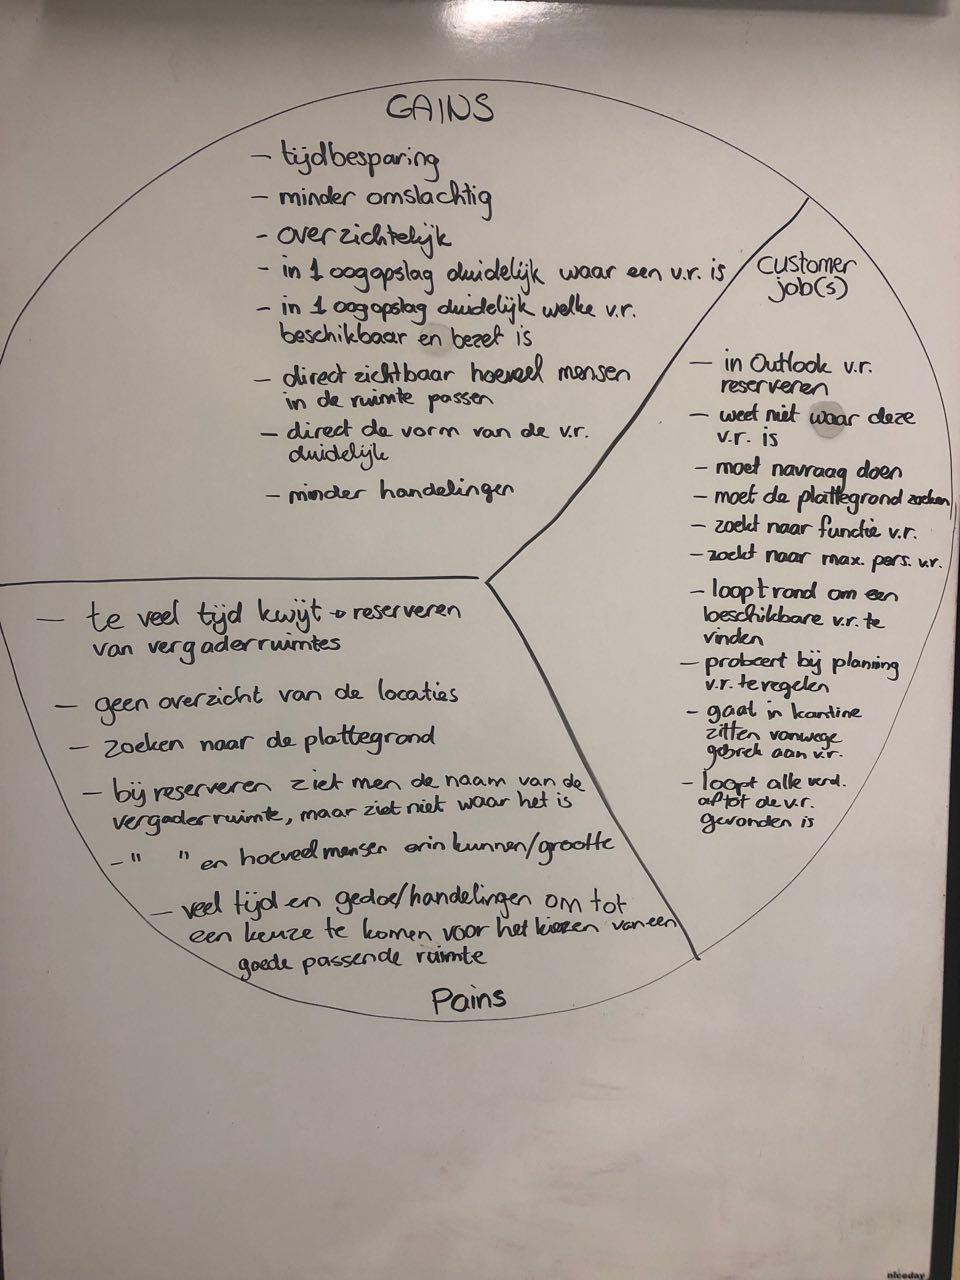 GAINS
- tijdbesparing
- minder omslachtig
- overzichtelijk
- in 1 oogopslag duidelijk waar een v.r. is
- in 1 oogopslag duidelijk welke v.r.
beschikbaar en bezet is
- direct zichtbaar hoeveel mensen
in de ruimte passen
- direct de vorm van de v.r.
duidelijk
- minder handelingen
Customer
job(s)
- in Outlook v.r.
reserveren
- weet niet waar deze
v.r. is
- moet navraag doen
- moet de plattegrond zoeken
- zoekt naar functie v.r.
- zoekt naar max. pers. v.r.
- loopt rond om een
beschikbare v.r. te
vinden
- probeert bij planning
v.r. te regelen
- gaat in kantine
zitten vanwege
gebrek aan v.r.
- loopt alle verd.
af tot de v.r.
gevonden is
- te veel tijd kwijt → reserveren
van vergaderruimtes
- geen overzicht van de locaties
- zoeken naar de plattegrond
- bij reserveren ziet men de naam van de
vergaderruimte, maar ziet niet waar het is
- " " en hoeveel mensen erin kunnen/grootte
- veel tijd en gedoe/handelingen om tot
een keuze te komen voor het kiezen van een
goede passende ruimte
Pains
niceday